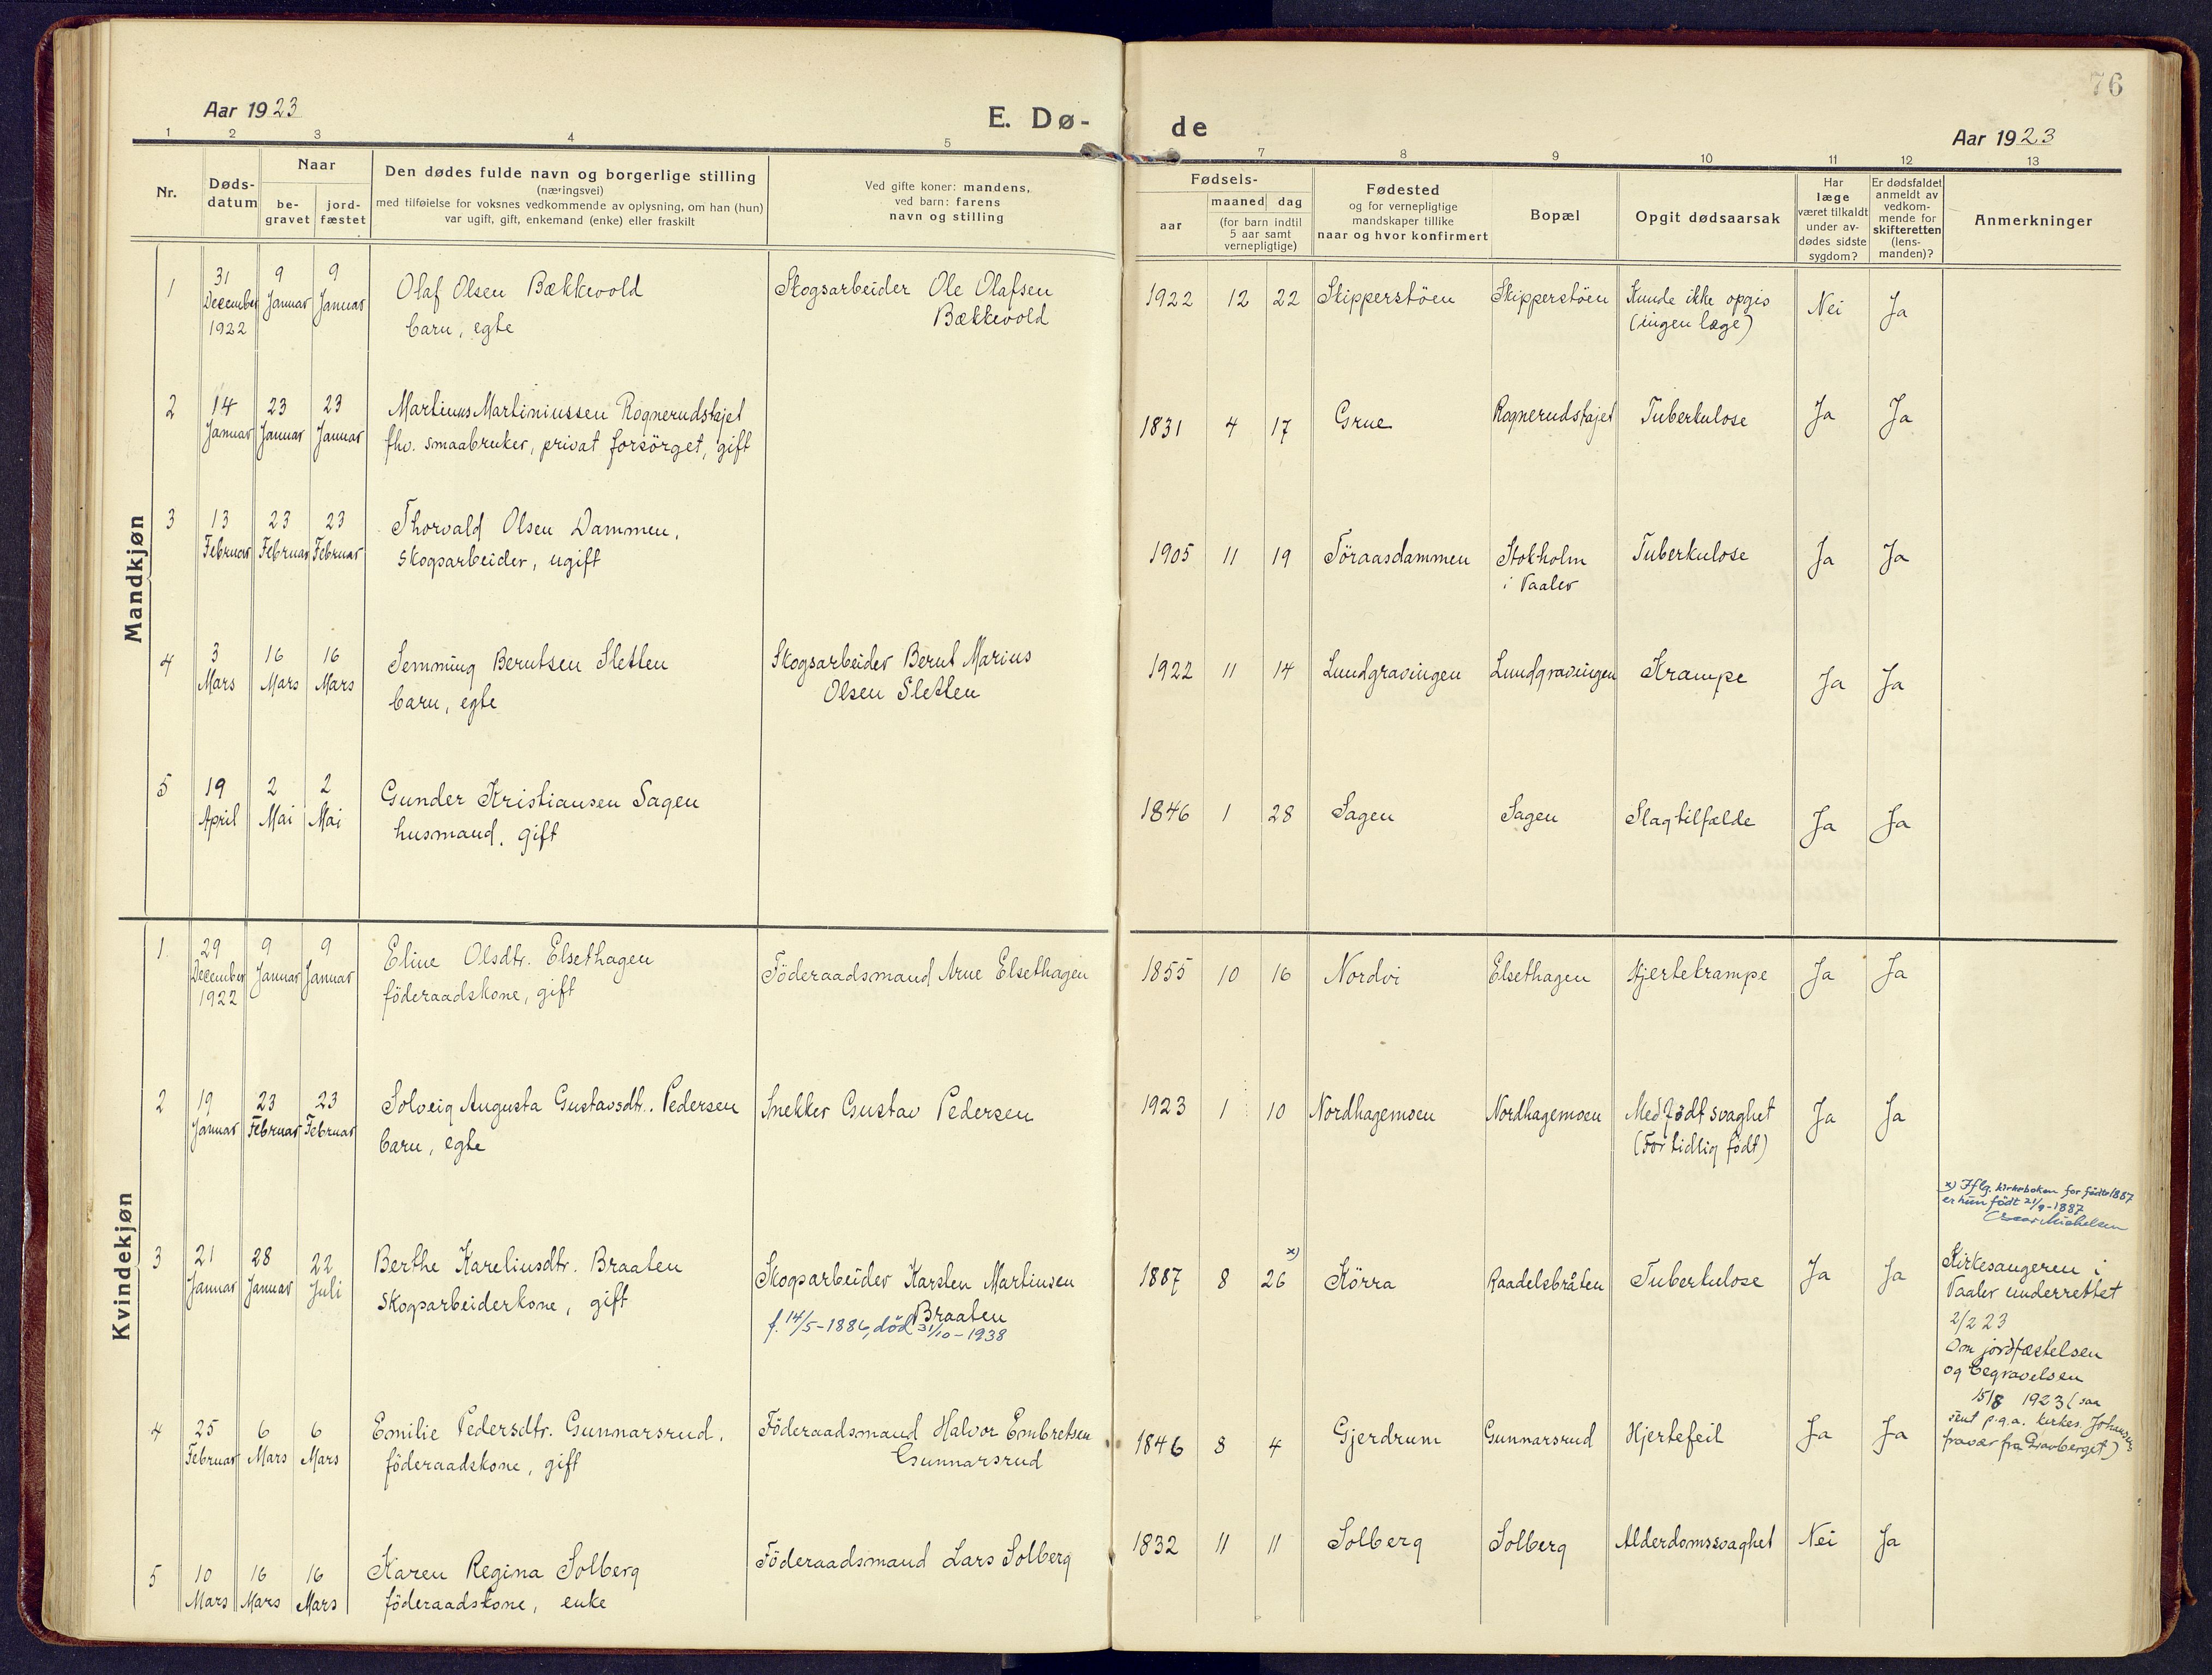 76
Aar 1923
E. Dø-
de
Aar 1923
1 2 3 4 5 7 8 9 10 11 12 13
Nr.
Døds-
datum
Naar
be-
gravet
jord-
fæstet
Den dødes fulde navn og borgerlige stilling
(næringsvei)
med tilføielse for voksnes vedkommende av oplysning, om han (hun)
var ugift, gift, enkemand (enke) eller fraskilt
Ved gifte koner: mandens,
ved barn: farens
navn og stilling
Fødsels-
aar
maaned dag
(for barn indtil
5 aar samt
vernepligtige)
Fødested
og for vernepligtige
mandskaper tillike
naar og hvor konfirmert
Bopæl
Opgit dødsaarsak
Har
læge
været tilkaldt
under av-
dødes sidste
sygdom?
Er dødsfaldet
anmeldt av
vedkom-
mende for
skifteretten
(lens-
manden)?
Anmerkninger
Mandkjøn
1 31 9 9 Olaf Olsen Bækkevold Skogsarbeider Ole Olafsen 1922 12 22 Skipperstöen Skipperstöen Kunde ikke opgis Nei Ja
December Januar Januar barn, egte Bækkevold (ingen læge)
1922
2 14 23 23 Martinus Martiniussen Rognerudstajet 1831 4 17 Grue Rognerudstajet Tuberkulose Ja Ja
Januar Januar Januar fhv. smaabruker, privat forsörget, gift
3 13 23 23 Thorvald Olsen Dammen, 1905 11 19 Töraasdammen Stokholm Tuberkulose Ja Ja
Februar Februar Februar skogsarbeider, ugift i Vaaler
4 3 16 16 Semming Berntsen Sletten Skogsarbeider Bernt Marius 1922 11 14 Lundgravingen Lundgravingen Krampe Ja Ja
Mars Mars Mars barn, egte Olsen Sletten
5 19 2 2 Gunder Kristiansen Sagen 1846 1 28 Sagen Sagen Slagtilfælde Ja Ja
April Mai Mai husmand, gift
Kvindekjøn
1 29 9 9 Eline Olsdtr. Elsethagen Föderaadsmand Arne Elsethagen 1855 10 16 Nordvi Elsethagen Hjertekrampe Ja Ja
December Januar Januar föderaadskone, gift
1922
2 19 23 23 Solveig Augusta Gustavsdtr. Pedersen Snekker Gustav Pedersen 1923 1 10 Nordhagemoen Nordhagemoen Medfödt svaghet Ja Ja
Januar Februar Februar barn, egte (For tidlig födt)
x) Iflg. kirkeboken for födte 1887
er hun födt 21/9-1887
Michelsen
3 21 28 22 Berthe Kareliusdtr. Braaten Skogsarbeider Karsten Martinsen 1887 8 26 x) Körra Raadelsbråten Tuberkulose Ja Ja
Januar Januar Juli skogsarbeiderkone, gift Braaten
f. 14/5-1886, död 31/10-1938
Kirkesangeren i
Vaaler underrettet
2/2 23
Om jordfæstelsen
og begravelsen
15/8 1923 (saa
sent p.g.a. kirkes. Johansens
fravær fra Gravberget)
4 25 6 6 Emilie Pedersdtr. Gunnarsrud, Föderaadsmand Halvor Embretsen 1846 8 4 Gjerdrum Gunnarsrud Hjertefeil Ja Ja
Februar Mars Mars föderaadskone, gift Gunnarsrud
5 10 16 16 Karen Regina Solberg Föderaadsmand Lars Solberg 1832 11 11 Solberg Solberg Alderdomssvaghet Nei Ja
Mars Mars Mars föderaadskone, enke